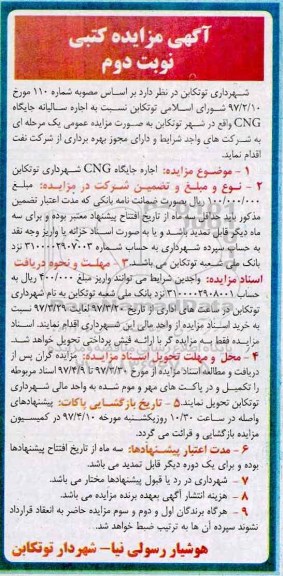 آگهی مزایده کتبی
نوبت دوم
شهرداری توتکابن در نظر دارد بر اساس مصوبه شماره ۱۱۰ مورخ
۹۷/۲/۱۰ شورای اسلامی توتکابن نسبت به اجاره سالیانه جایگاه
CNG واقع در شهر توتکابن به صورت مزایده عمومی یک مرحله ای
به شرکت های واجد شرایط و دارای مجوز بهره برداری از شرکت نفت
اقدام نماید.
۱ - موضوع مزایده: اجاره جایگاه CNG شهرداری توتکابن
۲ - نوع و مبلغ و تضمین شرکت در مزایده: مبلغ
۱۰۰/۰۰۰/۰۰۰ ریال بصورت ضمانت نامه بانکی که مدت اعتبار تضمین
مذکور باید حداقل سه ماه از تاریخ افتتاح پیشنهاد معتبر بوده و برای سه
ماه دیگر قابل تمدید باشد و یا به صورت اسناد خزانه یا واریز وجه نقد
به حساب سپرده شهرداری به حساب شماره ۳۱۰۰۰۰۲۹۰۷۰۰۳ نزد
بانک ملی شعبه توتکابن می باشد. ۳ - مهلت و نحوه دریافت
اسناد مزایده: واجدین شرایط می توانند واریز مبلغ ۴۰۰/۰۰۰ ریال به
حساب ۳۱۰۰۰۰۲۹۰۸۰۰۱ نزد بانک ملی شعبه توتکابن به نام شهرداری
توتکابن در ساعت های اداری از تاریخ ۹۷/۳/۲۰ لغایت ۹۷/۳/۲۹ نسبت
به خرید اسناد مزایده از واحد مالی این شهرداری اقدام نمایند. اسناد
مزایده فقط به مزایده گر با ارائه فیش پرداختی تحویل خواهد شد.
۴ - محل و مهلت تحویل اسناد مزایده: مزایده گران پس از
دریافت و مطالعه اسناد مزایده از مورخ ۹۷/۳/۳۰ تا ۹۷/۴/۹ اسناد مربوطه
را تکمیل و در پاکت های مهر و موم شده به واحد مالی شهرداری
توتکابن تحویل نمایند. ۵ - تاریخ بازگشایی پاکات: پیشنهادهای
واصله در ساعت ۱۰/۳۰ روزیکشنبه مورخه ۹۷/۴/۱۰ در کمیسیون
مزایده بازگشایی و قرائت می گردد.
۶ - مدت اعتبار پیشنهادها: سه ماه از تاریخ افتتاح پیشنهادها
بوده و برای یک دوره دیگر قابل تمدید می باشد.
۷ - شهرداری در رد یا قبول پیشنهادها مختار می باشد.
۸ - هزینه انتشار آگهی بعهده برنده مزایده می باشد.
۹ - هرگاه برندگان اول و دوم و سوم مزایده حاضر به انعقاد قرارداد
نشوند سپرده آن ها به ترتیب ضبط خواهد شد.
هوشیار رسولی نیا- شهردار توتکابن